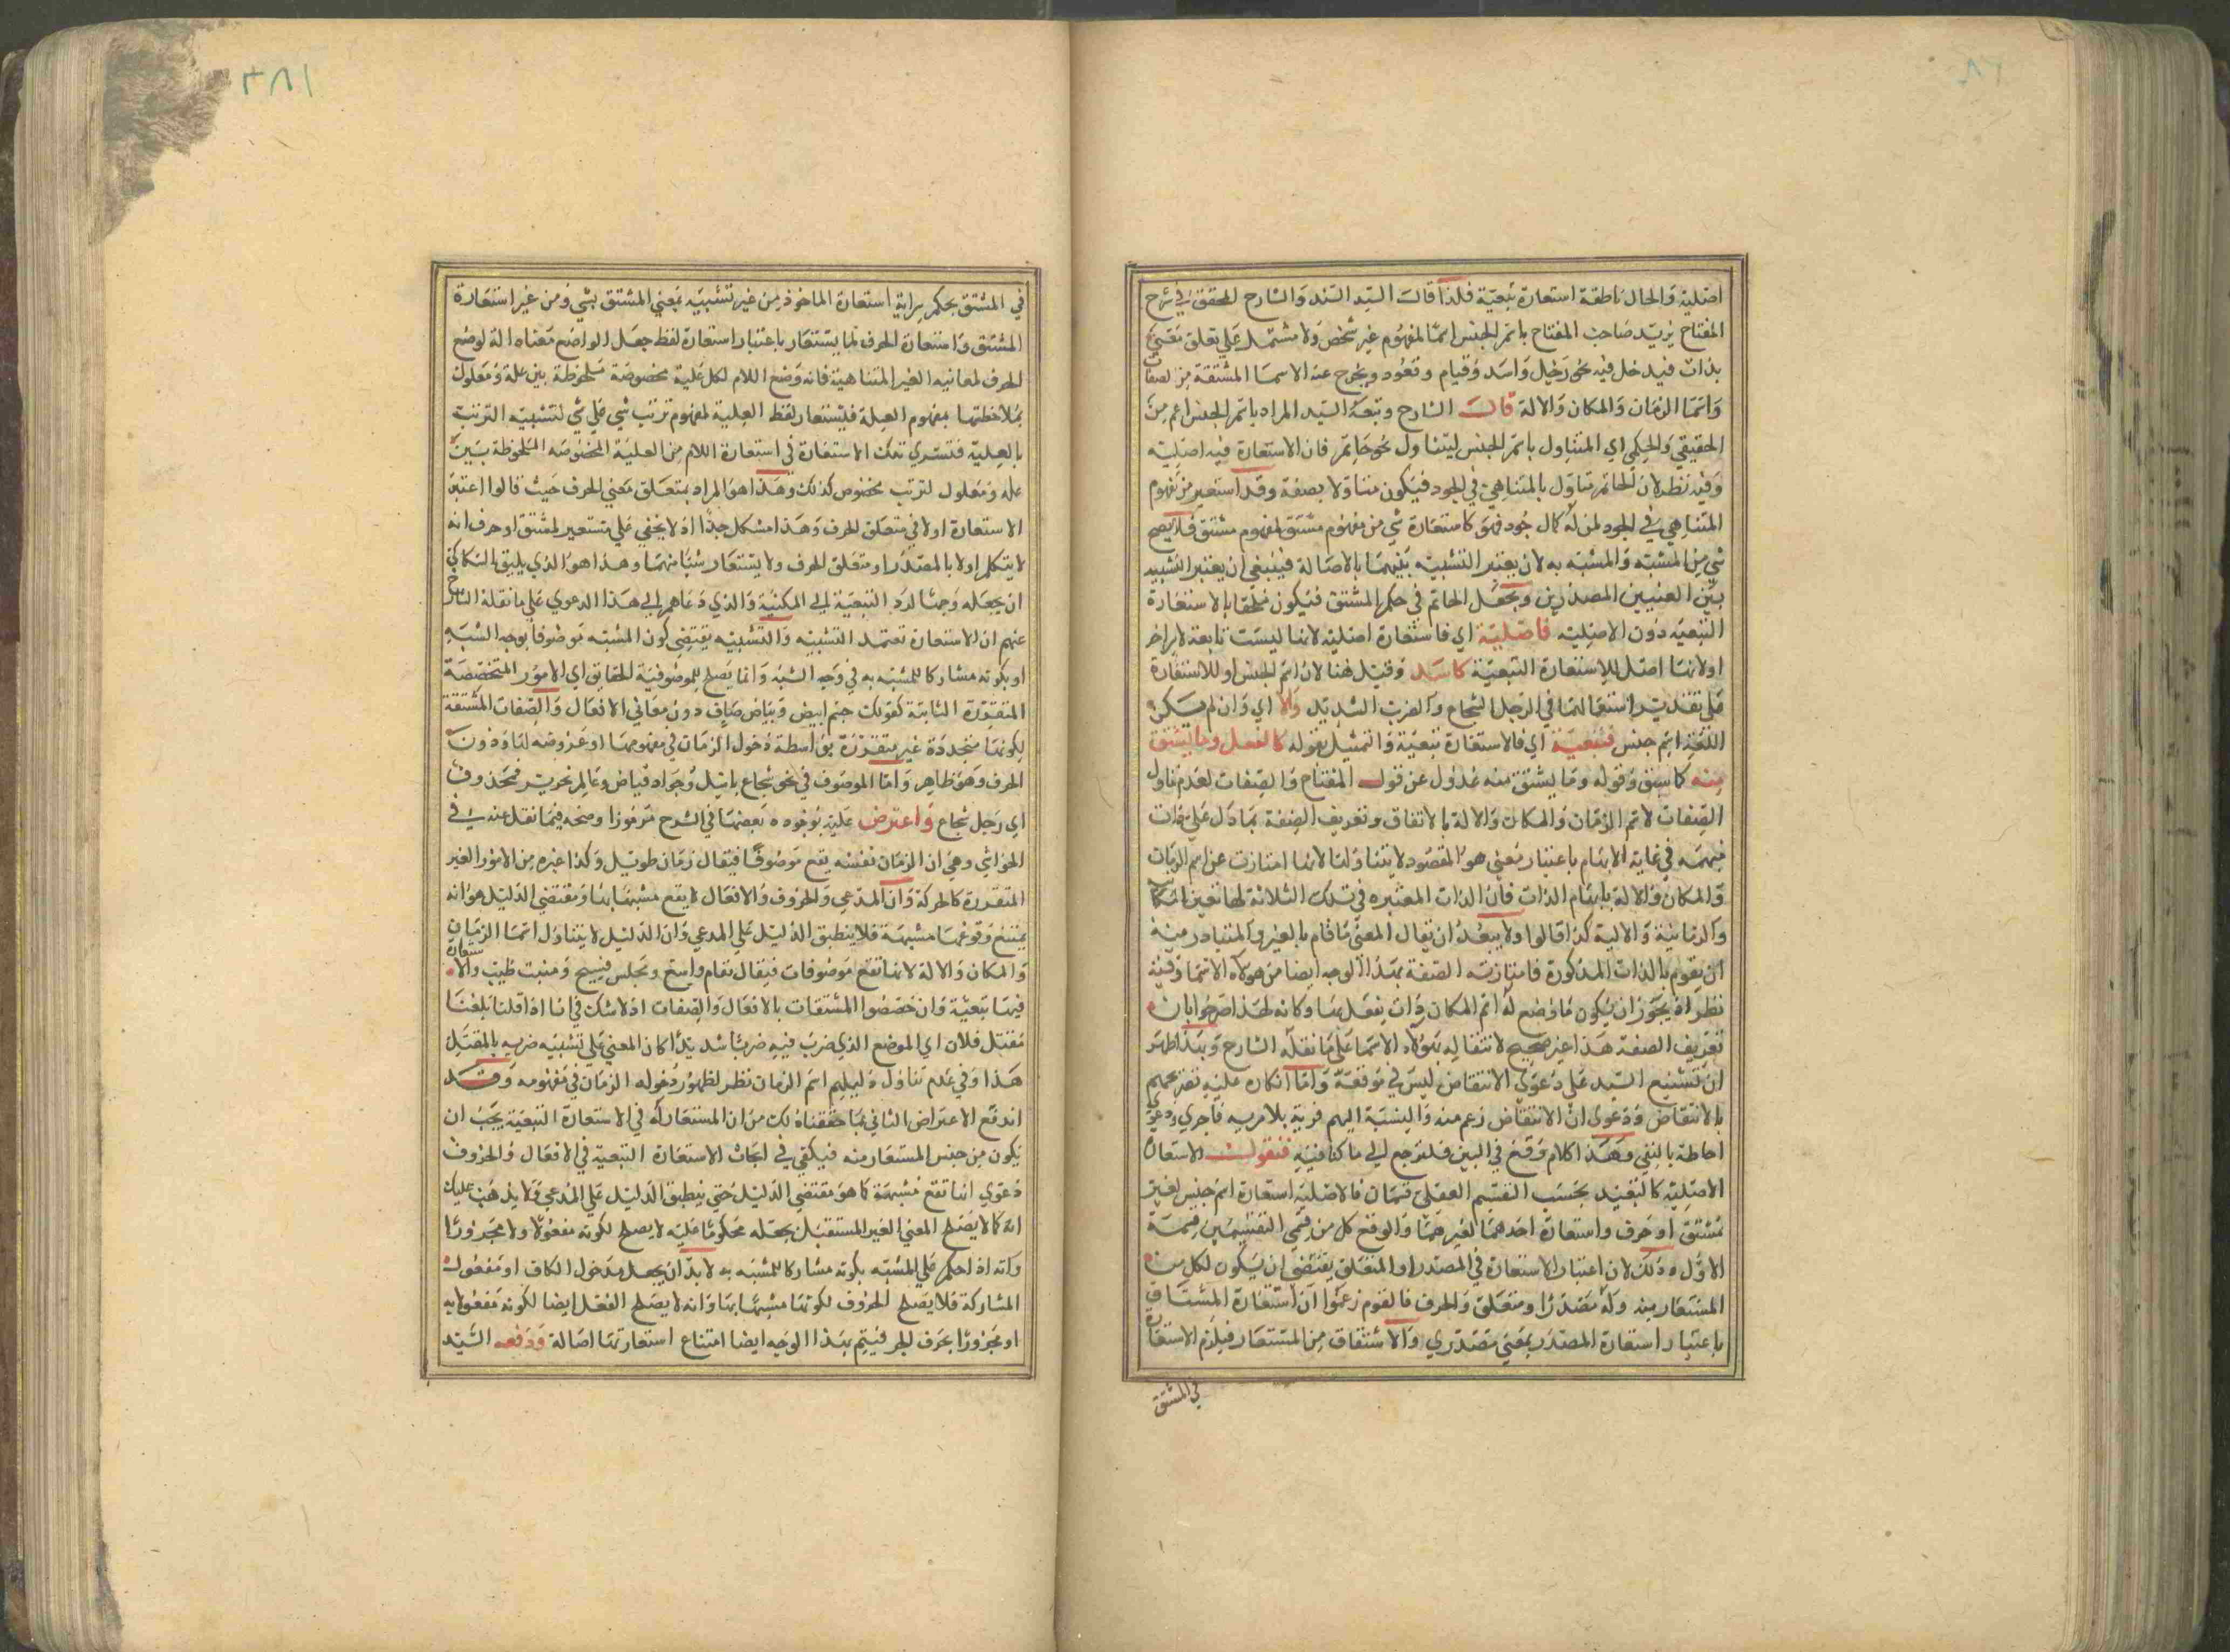 اصلية والحال ناطقة استعارة تبعية فلذا قال السيد السند والشارح المحقق في شرح
المفتاح يريد صاحب المفتاح باسم الجنس اسما لمفهوم غير شخص ولا مشتمل على تعلق معنى
بذات فيدخل فيه نحو رجل واسد وقيام وقعود ويخرج عنه الاسما المشتقة من الصفات
واسما الزمان والمكان والالة قال الشارح وتبعه السيد المراد باسم الجنس اعم من
الحقيقي والحكمي اي المتناول باسم الجنس ليتناول نحو حاتم فان الاستعارة فيه اصلية
وفيه نظر لان الحاتم متاول بالمتناهي في الجود فيكون متناولا بصفة وقد استعير من مفهوم
المتناهي في الجود لمن له كمال جود فهو كاستعارة شي من مفهوم مشتق لمفهوم مشتق فلا يصح
شي من المشبه والمشبه به لان يعتبر التشبيه بينهما بالاصالة فينبغي ان يعتبر التشبيه
بين المعنيين المصدرين ويجعل الحاتم في حكم المشتق فيكون ملحقا بالاستعارة
التبعية دون الاصلية فاصلية اي فاستعارة اصلية لانها ليست تابعة لامر اخر
اولانها اصل للاستعارة التبعية كاسد وقيل هنا لان اسم الجنس او للاستعارة
على تقدير استعمالها في الرجل الشجاع والضرب الشديد والا اي وان لم يكن
اللفظ اسم جنس فتبعية اي فالاستعارة تبعية والتمثيل بقوله كالفعل وما يشتق
منه كما سبق وقوله وما يشتق منه عدول عن قول المفتاح والصفات لعدم تناول
الصفات لاسم الزمان والمكان والالة بالاتفاق وتعريف الصفة بما دل على ذات
مبهمة في غاية الابهام باعتبار معنى هو المقصود لا يتناولها لانها امتازت عن اسم الزمان
والمكان والالة بابهام الذات فان الذات المعتبره في تلك الثلاثة لها تعين المكانية
والزمانية والالية كذا قالوا ولا يبعد ان يقال المعنى ما قام بالغير والمتبادر منه
ان يقوم بالذات المذكورة فامتازت الصفة بهذا الوجه ايضا من هولاء الاسما وفيه
نظر اذ يجوز ان يكون ما وضع له اسم المكان ذات يفعل بها وكانه لهذا صرحوا بان
تعريف الصفة هذا غير صحيح لانتقاله بهولاء الاسما على ما نقله الشارح وبهذا ظهر
ان تشنيع السيد على دعوى الانتقاض ليس في موقعة واما انكاره عليه تصريحهم
بالانتقاض ودعوى ان الانتقاض زعم منه والنسبة اليهم فرية بلا مرية فاجري دعوى
احاطة بالنفي وهذا كلام وقع في البين فلنرجع الى ما كنا فيه فنقول الاستعارة
الاصلية كالتبعية بحسب التقسيم العقلي قسمان فالاصلية استعارة اسم جنس لغير
مشتق او حرف واستعارة احدهما لغيرهما والوقع كل من قسمي التقسيمين قسمة
الاول وذلك لان اعتبار الاستعارة في المصدر او المتعلق يقتضي ان يكون لكل من
المستعار منه وله مصدرا ومتعلق والحرف فالقوم زعموا ان استعارة المشتاق
باعتبار استعارة المصدر بمعنى مصدري والاشتقاق من المستعار فيلزم الاستعارة
في المشتق
في المشتق بحكم سراية استعارة الماخوذ من غير تشبيه بمعنى المشتق بشي ومن غير استعارة
المشتق واستعارة الحرف لما يستعار باعتبار استعارة لفظ جعل الواضع معناه الة لوضع
الحرف لمعانيه الغير المتناهية فانه وضع اللام لكل علية مخصوصة ملحوظة بين علة ومعلول
بملاحظتها بمفهوم العلة فليستعار لفظ العلية لمفهوم ترتب شي على شي لتشبيه الترتب
بالعلية فتسري تلك الاستعارة في استعارة اللام من العلية المخصوصه الملحوظة بين
علة ومعلول لترتب مخصوص كذلك وهذا هو المراد بمتعلق معنى الحرف حيث قالوا اعتبر
الاستعارة اولا في متعلق الحرف وهذا مشكل جدا اذ لا يخفى على مستعير لمشتق او حرف انه
لا يتكلم اولا بالمصدر او متعلق الحرف ولا يستعار شيا منهما وهذا هو الذي يليق بالسكاكي
ان يجعله وجها لرد التبعية الى المكنية والذي دعاهم الى هذا الدعوي على ما نقله الشارح
عنهم ان الاستعارة تعتمد التشبيه والتشبيه يقتضي كون المشبه موصوفا بوجه الشبه
او بكونه مشاركا للمشبه به في وجه الشبه وانما يصلح للموصوفية الحقايق اي الامور المتخصصة
المتقررة الثابتة كقولك جسم ابيض وبياض صاف دون معاني الافعال والصفات المشتقة
لكونها متجددة غير متقررة بواسطة دخول الزمان في مفهومها او عروضه لها ودون
الحرف وهو ظاهر واما الموصوف في نحو شجاع باسل وجواد فياض وعالم نحرير فمحذوف
اي رجل شجاع واعترض عليه بوجوه بعضها في الشرح مرموزا وصحه فيما نقل عنه في
الحواشي وهي ان الزمان نفسه يقع موصوفا فيقال زمان طويل وكذا غيره من الامور الغير
المتقررة كالحركة وان المدعي والحروف والافعال لا يقع مشبها بها ومقتضى الدليل هو انه
يمتنع وقوعها مشبهة فلا ينطبق الدليل على المدعي وان الدليل لا يتناول اسما الزمان
والمكان والالة لانها تقع موصوفات فيقال مقام واسع ومجلس فسيح ومنبت طيب والاستعارة
فيها تبعية وان خصصوا المشتقات بالافعال والصفات اذ لا شك في انا اذا قلنا بلغنا
مقتل فلان اي الموضع الذي ضرب فيه ضربا شديدا كان المعنى على تشبيه ضربه بالقتل
هذا وفي عدم تناول دليلهم اسم الزمان نظر لظهور دخوله الزمان في مفهومه وقد
اندفع الاعتراض الثاني بما حققناه لك من ان المستعار له في الاستعارة التبعية يجب ان
يكون من جنس المستعار منه فيكفي في ابحاث الاستعارة التبعية في الافعال والحروف
دعوي انها تقع مشبهة كما هو مقتضى الدليل حتى ينطبق الدليل على المدعي ولا يذهب عليك
انه كما لا يصلح المعنى الغير المستقبل بجعله محكوما عليه لا يصلح لكونه مفعولا ولا مجرورا
وانه اذا حكم على المشبه بكونه مشاركا للمشبه به لا بد ان يجعل مدخول الكاف او مفعول
المشاركة فلا يصلح الحروف لكونها مشبها بها وانه لا يصلح الفعل ايضا لكونه مفعولا به
او مجرورا بحرف الجر فيتم بهذا الوجه ايضا امتناع استعارتها اصالة ودفعه السيد